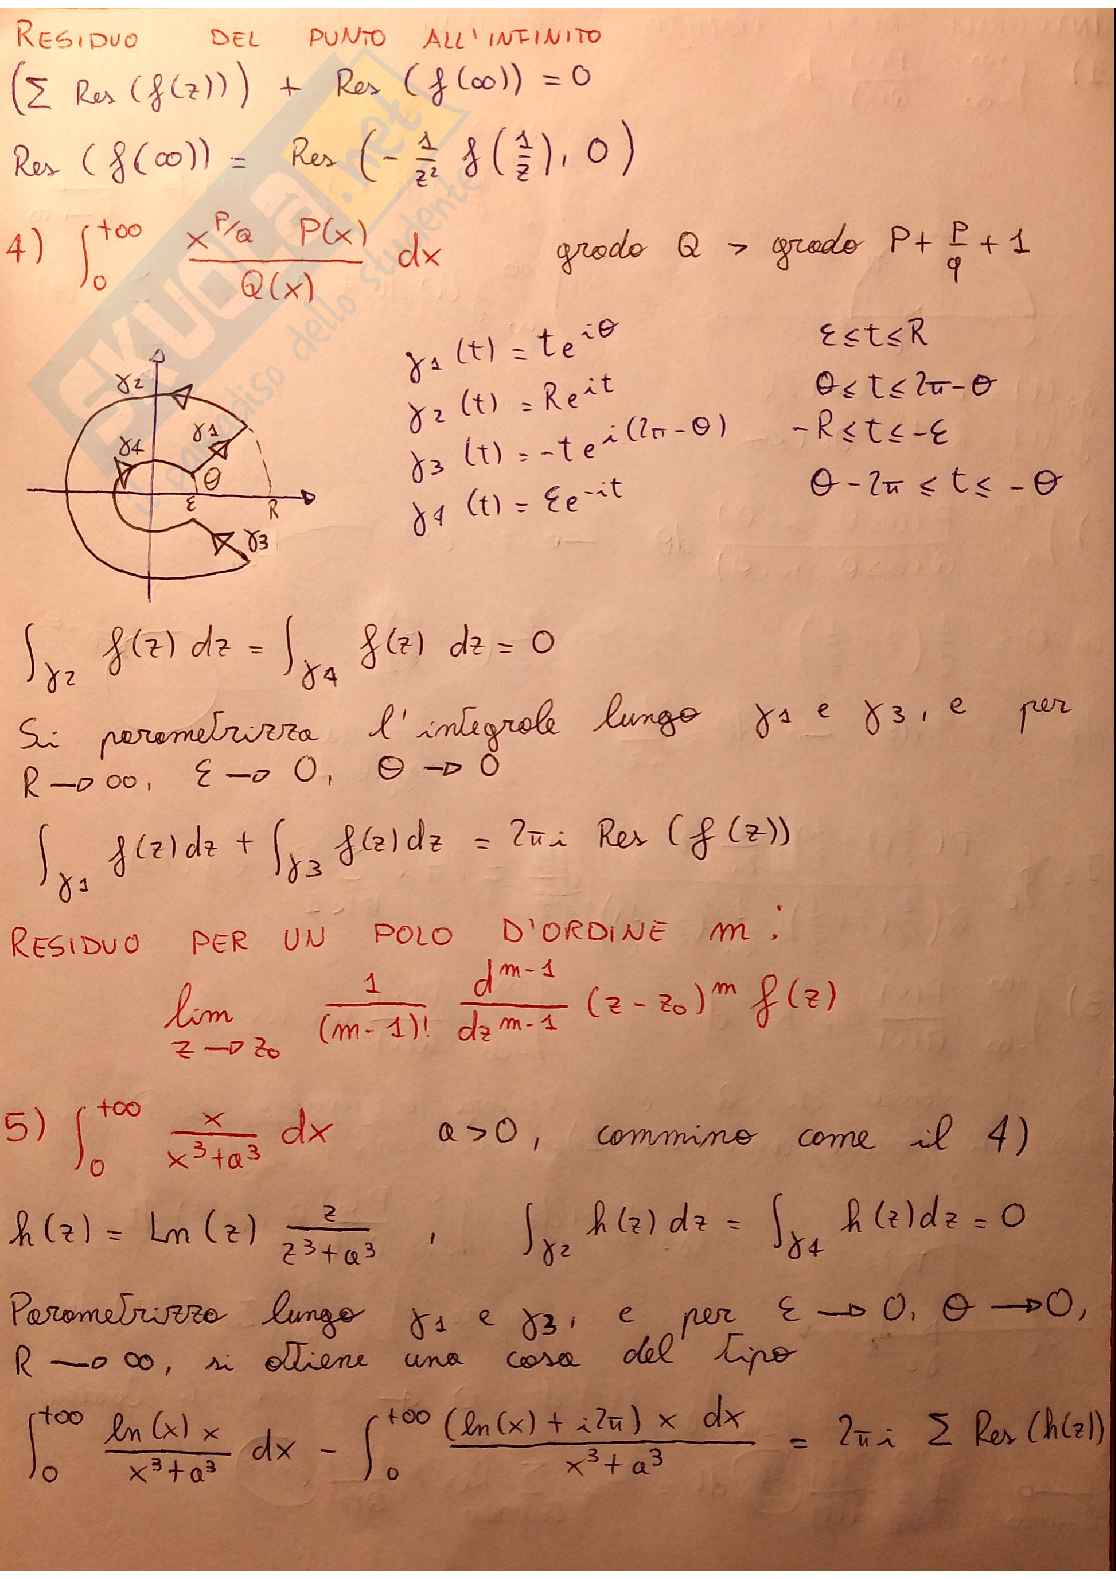 RESIDUO DEL PUNTO ALL'INFINITO
(Σ Res (f(z))) + Res (f(∞)) = 0
Res (f(∞)) = Res (- 1/z² f(1/z), 0)
4) ∫₀^{+∞} x^{P/Q} P(x) / Q(x) dx grado Q > grado P + p/q + 1
γ1 (t) = t e^{iθ} ε ≤ t ≤ R
γ2 (t) = R e^{it} θ ≤ t ≤ 2π - θ
γ3 (t) = -t e^{i(2π-θ)} -R ≤ t ≤ -ε
γ4 (t) = ε e^{-it} θ - 2π ≤ t ≤ -θ
γ2
γ4 γ1
θ
ε R
γ3
∫_{γ2} f(z) dz = ∫_{γ4} f(z) dz = 0
Si parametrizza l'integrale lungo γ1 e γ3, e per
R → ∞, ε → 0, θ → 0
∫_{γ1} f(z) dz + ∫_{γ3} f(z) dz = 2πi Res (f(z))
RESIDUO PER UN POLO D'ORDINE m:
lim_{z → z₀} 1/(m-1)! d^{m-1}/dz^{m-1} (z - z₀)^m f(z)
5) ∫₀^{+∞} x / (x³+a³) dx a>0, cammino come il 4)
h(z) = Ln(z) z / (z³+a³) , ∫_{γ2} h(z) dz = ∫_{γ4} h(z) dz = 0
Parametrizzo lungo γ1 e γ3, e per ε → 0, θ → 0,
R → ∞, si ottiene una cosa del tipo
∫₀^{+∞} ln(x) x / (x³+a³) dx - ∫₀^{+∞} (ln(x) + i2π) x dx / (x³+a³) = 2πi Σ Res (h(z))
SKUOLA.net
paradiso dello studente